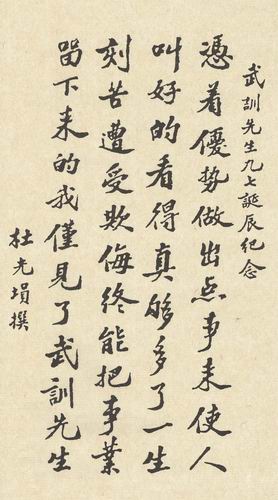 武訓先生九七誕辰纪念
憑着優势做出点事来使人
叫好的看得真够多了一生
刻苦遭受欺侮终能把事業
留下来的我僅見了武訓先生
杜光埙撰